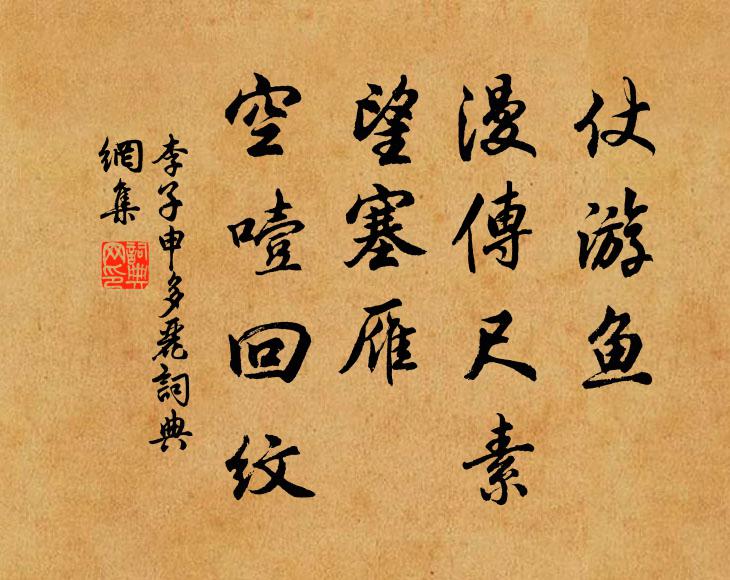 仗游鱼
漫傳尺素
望塞雁
空噎回纹
李子申多麗詞典
網集
詞典
网印